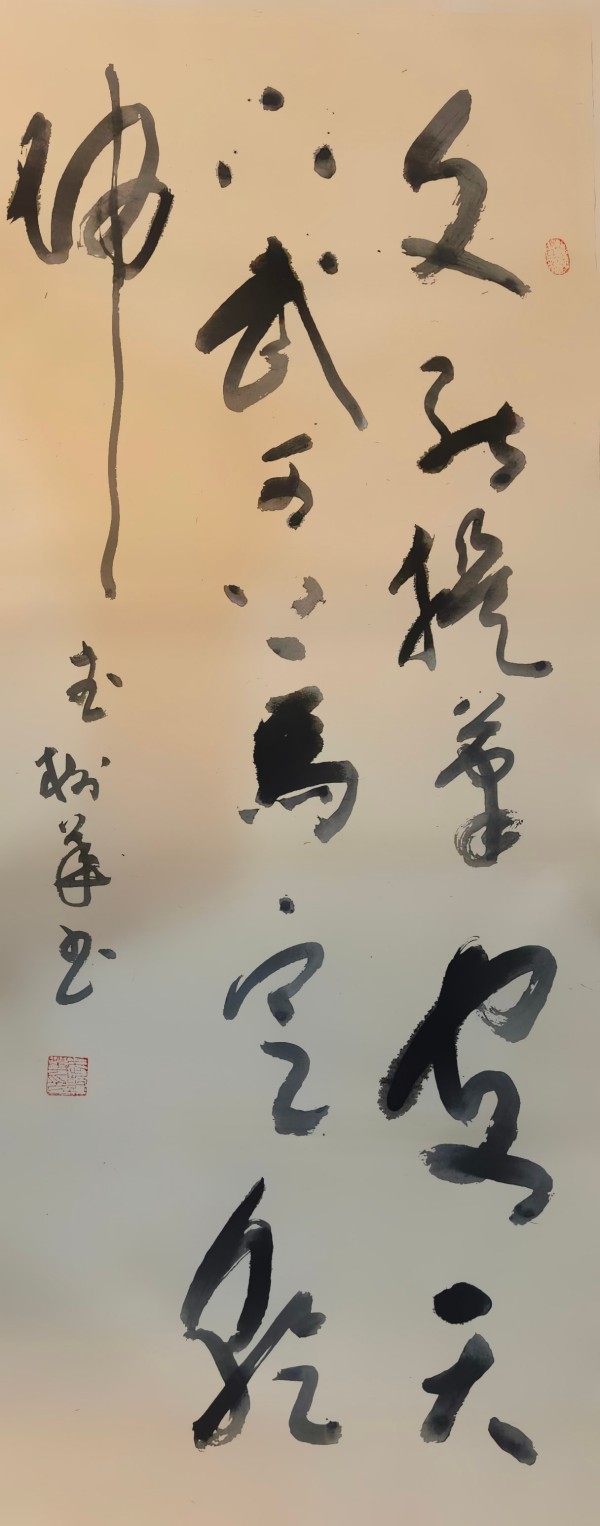 文能提筆安天
下武可上馬定乾
坤
樹華書